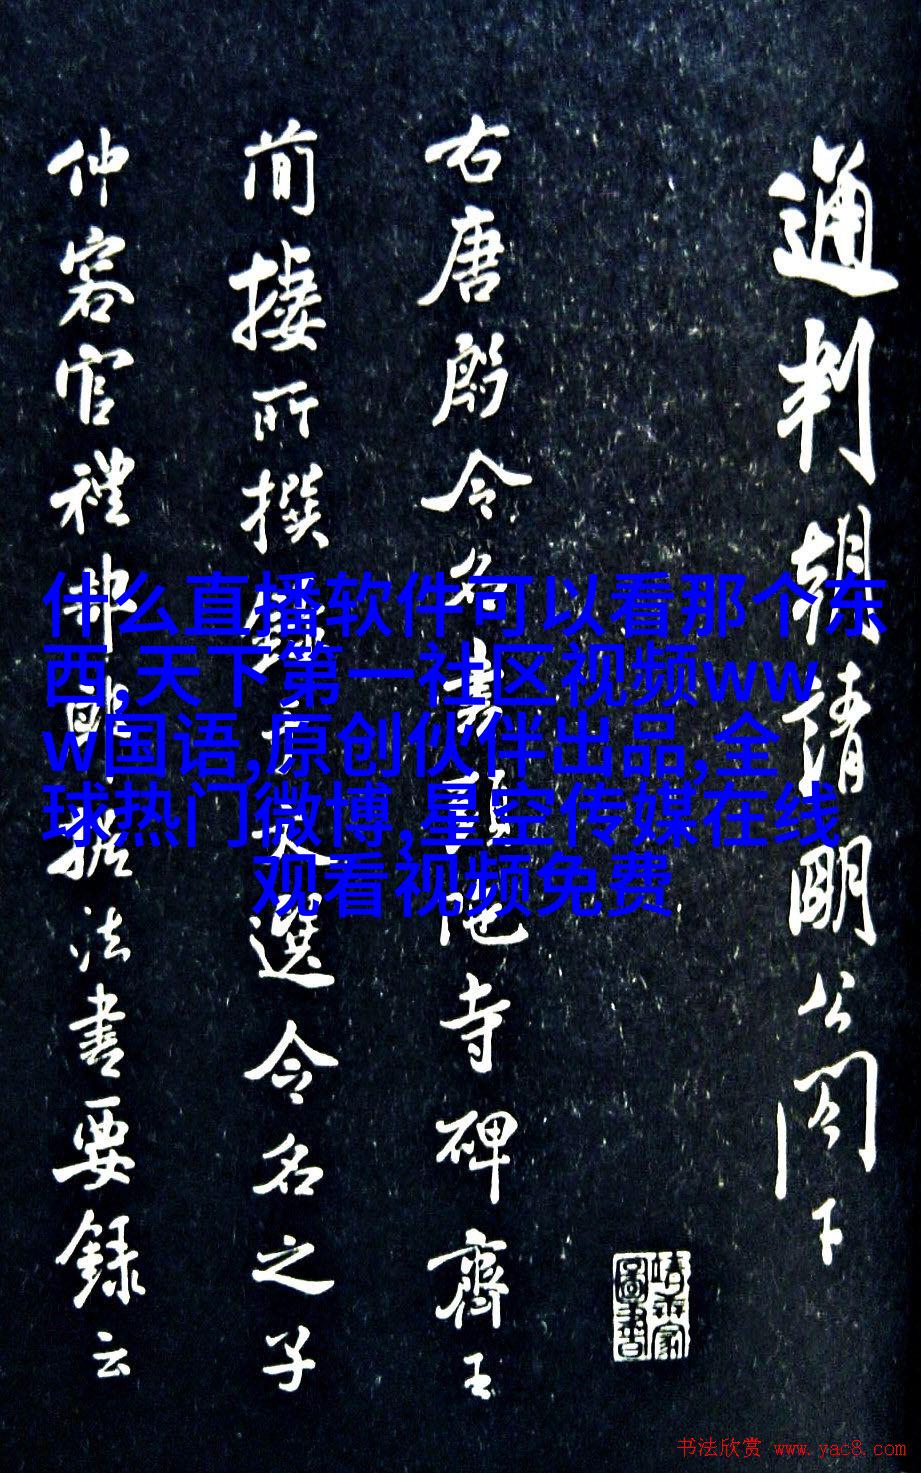 通判朝請明公閣下
右唐殷令名書頭陁寺碑齊王
簡棲所撰錄文選令名之子
仲容官禮部郎據法書要録云
什么直播软件可以看那个东
西,天下第一社区视频ww
w国语,原创伙伴出品,全
球热门微博,星空传媒在线
观看视频免费
书法欣赏 www.yac8.com